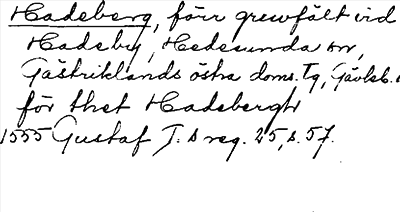 Hadeberg, förr gruvfält vid
Hadeby, Hedesunda sn,
Gästriklands östra doms. Tg, Gävleb.
för thet Hadebergh
1555 Gustaf I.s reg. 25, s. 57.